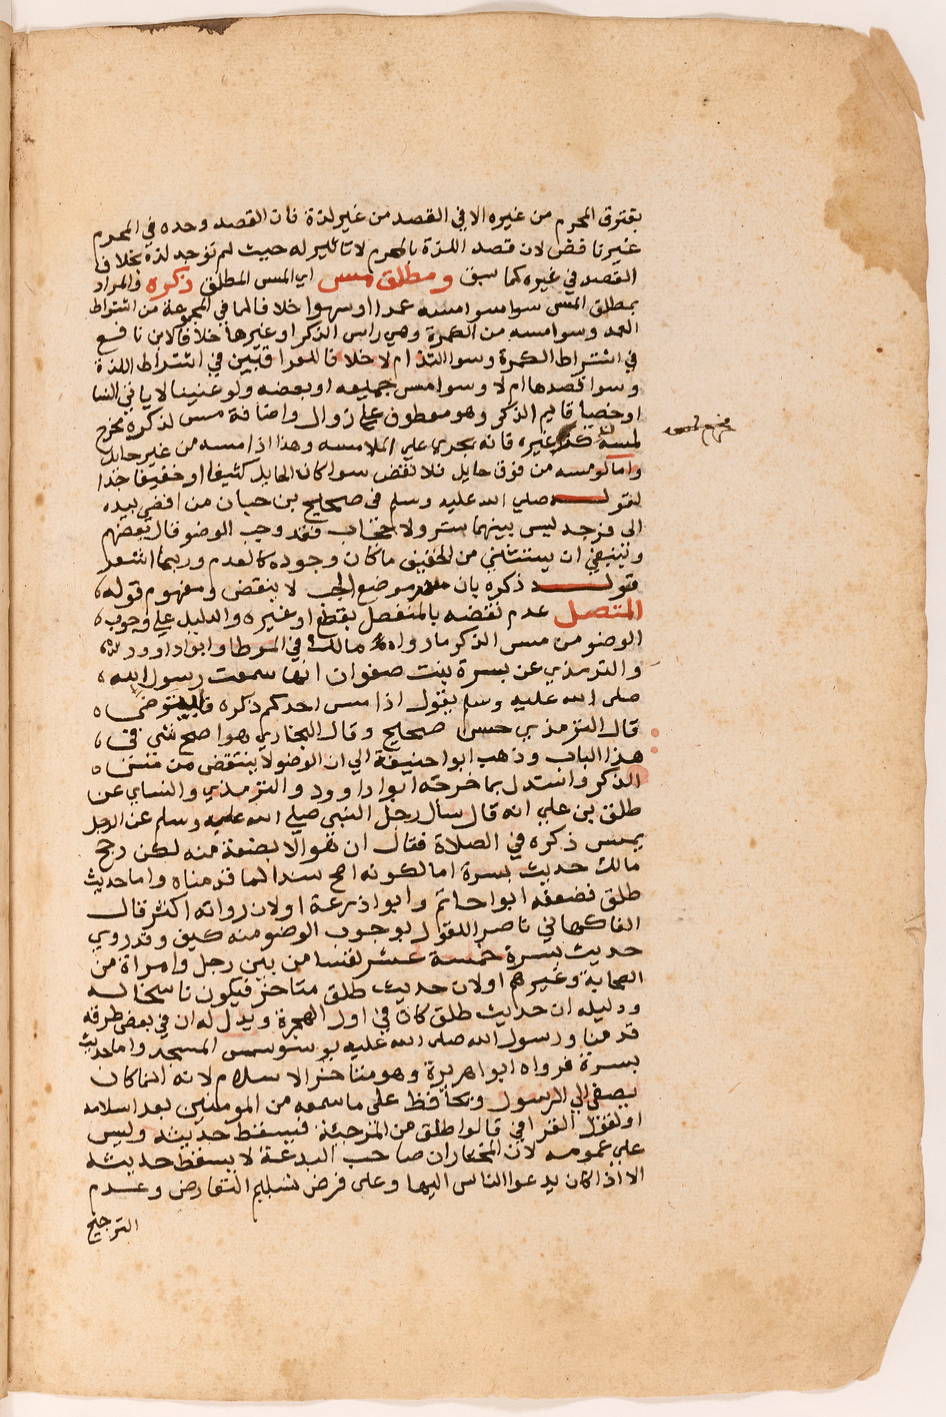 يفترق المحرم من غيره الا في القصد من غير لذة فان القصد وحده في المحرم
غير ناقض لان قصد اللذة بالمحرم لا تاثير له حيث لم توجد لذة بخلاف
القصد في غيره كما سبق ومطلق مس اي المس المطلق ذكره والمراد
بمطلق المس سوا مسه عمدا او سهوا خلافا لما في المجموعة من اشتراط
العمد وسوا مسه من الكمرة وهي راس الذكر او غيرها خلافا لابن نافع
في اشتراط الكمرة وسوا التذ ام لا خلافا للعراقيين في اشتراط اللذة
وسوا قصدها ام لا وسوا مس جميعه او بعضه ولو عنينا لا ياتي النسا
او خصيا قايم الذكر وهو معطوف على زوال واضافة مس لذكره تخرج
لمسه ذكر غيره فانه يجري على الملامسه وهذا اذا مسه من غير حايل
واما لو مسه من فوق حايل فلا نقض سوا كان الحايل كثيفا او خفيفا جدا
لقوله صلى الله عليه وسلم في صحيح بن حبان من افضى بيده
الى فرجه ليس بينهما ستر ولا حجاب فقد وجب الوضو قال بعضهم
وينبغي ان يستثنى من الخفيف ما كان وجوده كالعدم وربما اشعر
قوله ذكره بان موضع الجب لا ينقض ومفهوم قوله
المتصل عدم نقضه بالمنفصل بقطع او غيره والدليل على وجوب
الوضو من مس الذكر ما رواه مالك في الموطا وابوا داوود
والترمذي عن بسرة بنت صفوان انها سمعت رسول الله
صلى الله عليه وسلم يقول اذا مس احدكم ذكره فليتوضى
قال الترمذي حسن صحيح وقال البخاري هوا صح شي في
هذا الباب وذهب ابوا حنيفة الى ان الوضو لا ينتقض من مس
الذكر واستدل بما خرجه ابوا داوود والترمذي والنساي عن
طلق بن علي انه قال سال رجل النبي صلى الله عليه وسلم عن الرجل
يمس ذكره في الصلاة فقال ان هو الا بضعة منه لكن رجح
مالك حديث بسرة اما لكونه اصح سندا لما قدمناه واما حديث
طلق فضعفه ابوا حاتم وابوا ذرعة او لان رواته اكثر قال
الفاكهاني ناصرا للقول بوجوب الوضو منه كيف وقد روي
حديث بسرة خمسة عشر نفسا من بين رجل وامراة من
الصحابة وغيرهم او لان حديث طلق متاخر فيكون ناسخا له
ودليله ان حديث طلق كان في اول الهجرة ويدل له ان في بعض طرقه
قدمنا ورسول الله صلى الله عليه يوسس المسجد واما حديث
بسرة فرواه ابوا هريرة وهو متاخر الاسلام لانه انما كان
يصغي الى الرسول ويحافظ على ما سمعه من المومنين بعد اسلامه
او لقول القرافي قالوا طلق من المرجئة فيسقط حديثه وليس
على عمومه لان المختار ان صاحب البدعة لا يسقط حديثه
الا اذا كان يدعوا الناس اليها وعلى فرض تسليم التعارض وعدم
الترجيح